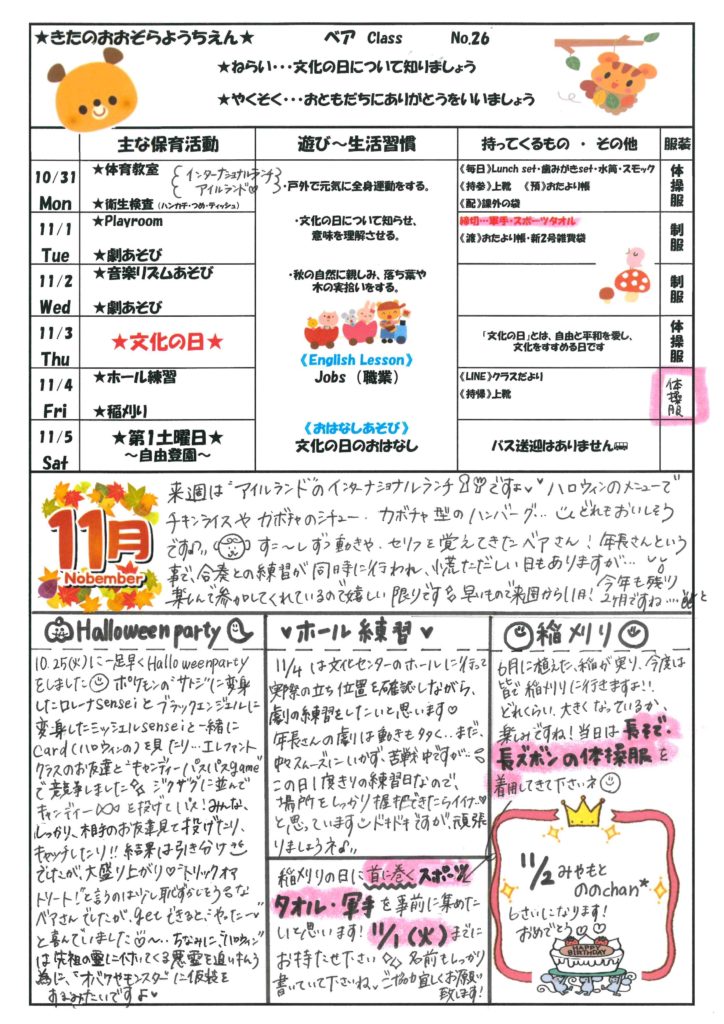 ★きたのおおぞらようちえん★ ベア Class No.26
★ねらい・・・文化の日について知りましょう
★やくそく・・・おともだちにありがとうをいいましょう
主な保育活動 遊び～生活習慣 持ってくるもの ・ その他 服装
10/31 Mon
★体育教室 インターナショナルランチ アイルランド♡
★衛生検査(ハンカチ・つめ・ティッシュ)
・戸外で元気に全身運動をする。
《毎日》Lunch set・歯みがきset・水筒・スモック
《持参》上靴 《預》おたより帳
《配》課外の袋
体操服
11/1 Tue
★Playroom
★劇あそび
・文化の日について知らせ、
意味を理解させる。
締切…軍手・スポーツタオル
《渡》おたより帳・新2号雑貨袋
制服
11/2 Wed
★音楽リズムあそび
★劇あそび
・秋の自然に親しみ、落ち葉や
木の実拾いをする。
制服
11/3 Thu
★文化の日★
《English Lesson》
「文化の日」とは、自由と平和を愛し、
文化をすすめる日です
体操服
11/4 Fri
★ホール練習
★稲刈り
Jobs (職業)
《LINE》クラスだより
《持帰》上靴
体操服
11/5 Sat
★第1土曜日★
～自由登園～
《おはなしあそび》
文化の日のおはなし
バス送迎はありません
11月
Nobember
来週は"アイルランド"のインターナショナルランチですよ♥ハロウィンのメニューで
チキンライスやカボチャのシチュー、カボチャ型のハンバーグ…どれもおいしそう
ですね♪ すこ〜しずつ動きや、セリフを覚えてきたベアさん!年長さんという
事で、合奏との練習が同時に行われ、慌ただしい日もありますが…
楽しんで参加してくれているので嬉しい限りです 早いもので来週から11月!今年も残り
2ヶ月ですね…
Halloween party
10.25(火)に一足早くHalloween party
をしました☺ポケモンの"サトシ"に変身
したロレーナsenseiとブラックエンジェルに
変身したミッシェルsenseiと一緒に
card(ハロウィンの)を見たり…エレファント
クラスのお友達と"キャンディーパスパスgame"
で競争しました ジグザグに並んで
キャンディーを投げました!みんな、
しっかり、相手のお友達見て投げたり、
キャッチしたり!!結果は引き分け
でしたが、大盛り上がり♡"トリックオア
トリート!"と言うのは少し恥ずかしそうな
ベアさんでしたが、getできると"やったー"
と喜んでいました♡〜.ちなみに"ハロウィン"
は先祖の霊に付いてくる悪霊を追い払う
為に、"オバケやモンスター"に仮装を
するみたいですよ♥
♥ホール練習♥
11/4は文化センターのホールに行って
実際の立ち位置を確認しながら、
劇の練習をしたいと思います♡
年長さんの劇は動きも多く…まだ、
中々スムーズにいかず、苦戦中ですが…
この日1度きりの練習日なので、
場所をしっかり把握できたらイイナ♡
と思っています ドキドキですが、頑張
りましょうネ♪
☺稲刈り☺
6月に植えた、稲が実り、今度は
皆で稲刈りに行きますよ!!
どれくらい、大きくなっているか、
楽しみですね!当日は長そで・
長ズボンの体操服を
着用してきて下さいネ☺
稲刈りの日に首に巻くスポーツ
タオル・軍手を事前に集めた
いと思います!11/1(火)までに
お持たせ下さい 名前もしっかり
書いていて下さいね ご協力宜しくお願い
致します!
11/2 みやもと
ののchan*
6さいになります!
おめでとう♡
HAPPY BIRTHDAY